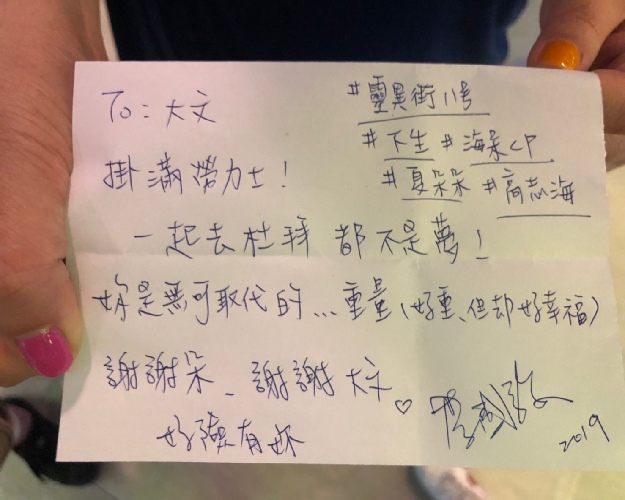 To: 大文
#靈異街11号
#下生 #海朵CP
#夏朵朵 #商志海
掛滿勞力士!
一起去杜拜 都不是夢!
妳是無可取代的...重量(好重、但却好幸福)
謝謝朵、謝謝大文♡
好險有妳
2019